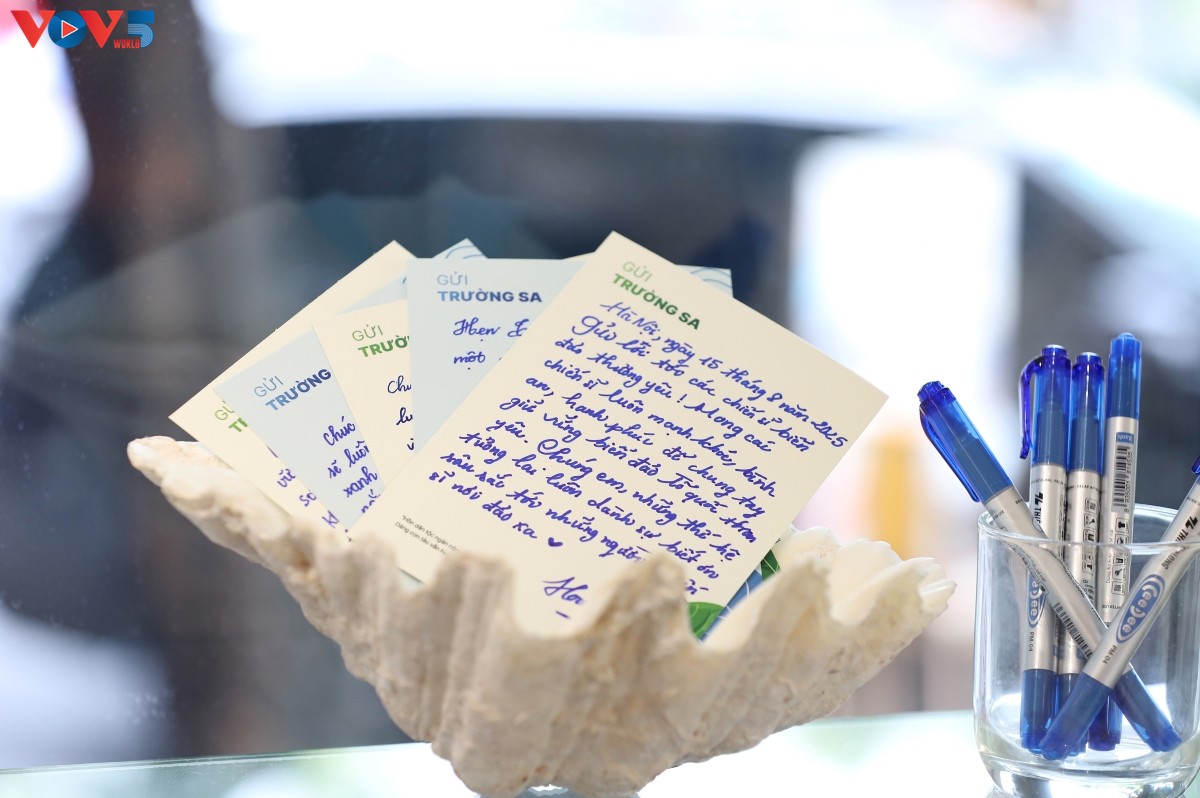 VOV5
WORLD
GỬI
TRƯỜNG SA
Hà Nội, ngày 15 tháng 8 năm 2025
Gửi lời tới các chiến sĩ biển
đảo thương yêu! Mong các
chiến sĩ luôn mạnh khỏe, bình
an, hạnh phúc để chung tay
giữ vững biển đảo Tổ quốc thân
yêu. Chúng em, những thế hệ
tương lai luôn dành sự biết ơn
sâu sắc tới những người
sĩ nơi đảo xa ♥
GỬI
TRƯỜNG SA
Hẹn
một
GỬI
TRƯỜ
Chú
GỬI
TRƯỜNG
Chúc
sĩ luôn
xanh
GỬI
CeeDee
PM 04
PM 04